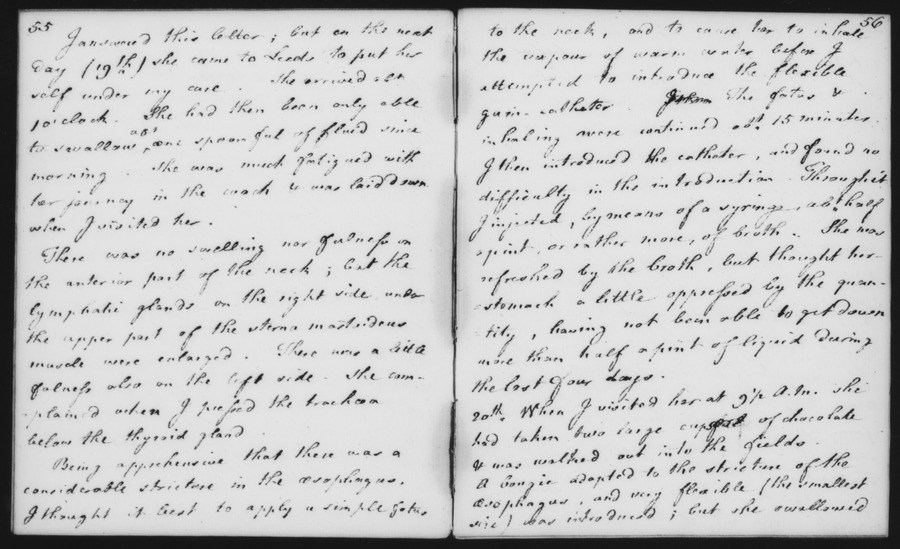 55
I answered this letter; but on the next
day (19th) she came to Leeds to put her
self under my care. She arrived at
1 o'clock. She had then been only able
to swallow abt one spoonful of fluid since
morning. She was much fatigued with
her journey in the coach & was laid down
when I visited her.
There was no swelling nor fulness on
the anterior part of the neck; but the
lymphatic glands on the right side under
the upper part of the sterno mastoideus
muscle were enlarged. There was a little
fulness also on the left side. She com-
plain'd when I pressed the trachœa
below the thyroid gland.
Being apprehensive that there was a
considerable stricture in the œsophagus,
I thought it best to apply a simple fotus
56
to the neck, and to cause her to inhale
the vapour of warm water before I
attempted to introduce the flexible
gum-catheter. The fotus &
inhaling were continued abt 15 minutes.
I then introduced the catheter, and found no
difficulty in the introduction. Through it
I injected, by means of a syringe, abt half
a pint, or rather more, of broth. She was
refreshed by the broth, but thought her
stomach a little oppressed by the quan-
tity, having not been able to get down
more than half a pint of liquid during
the last four days.
20th. When I visited her at 9½ A.m. she
had taken two large cups of chocolate
& was walked out into the fields.
A bougie adapted to the stricture of the
œsophagus, and very flexible (the smallest
size) was introduced; but she swallowed